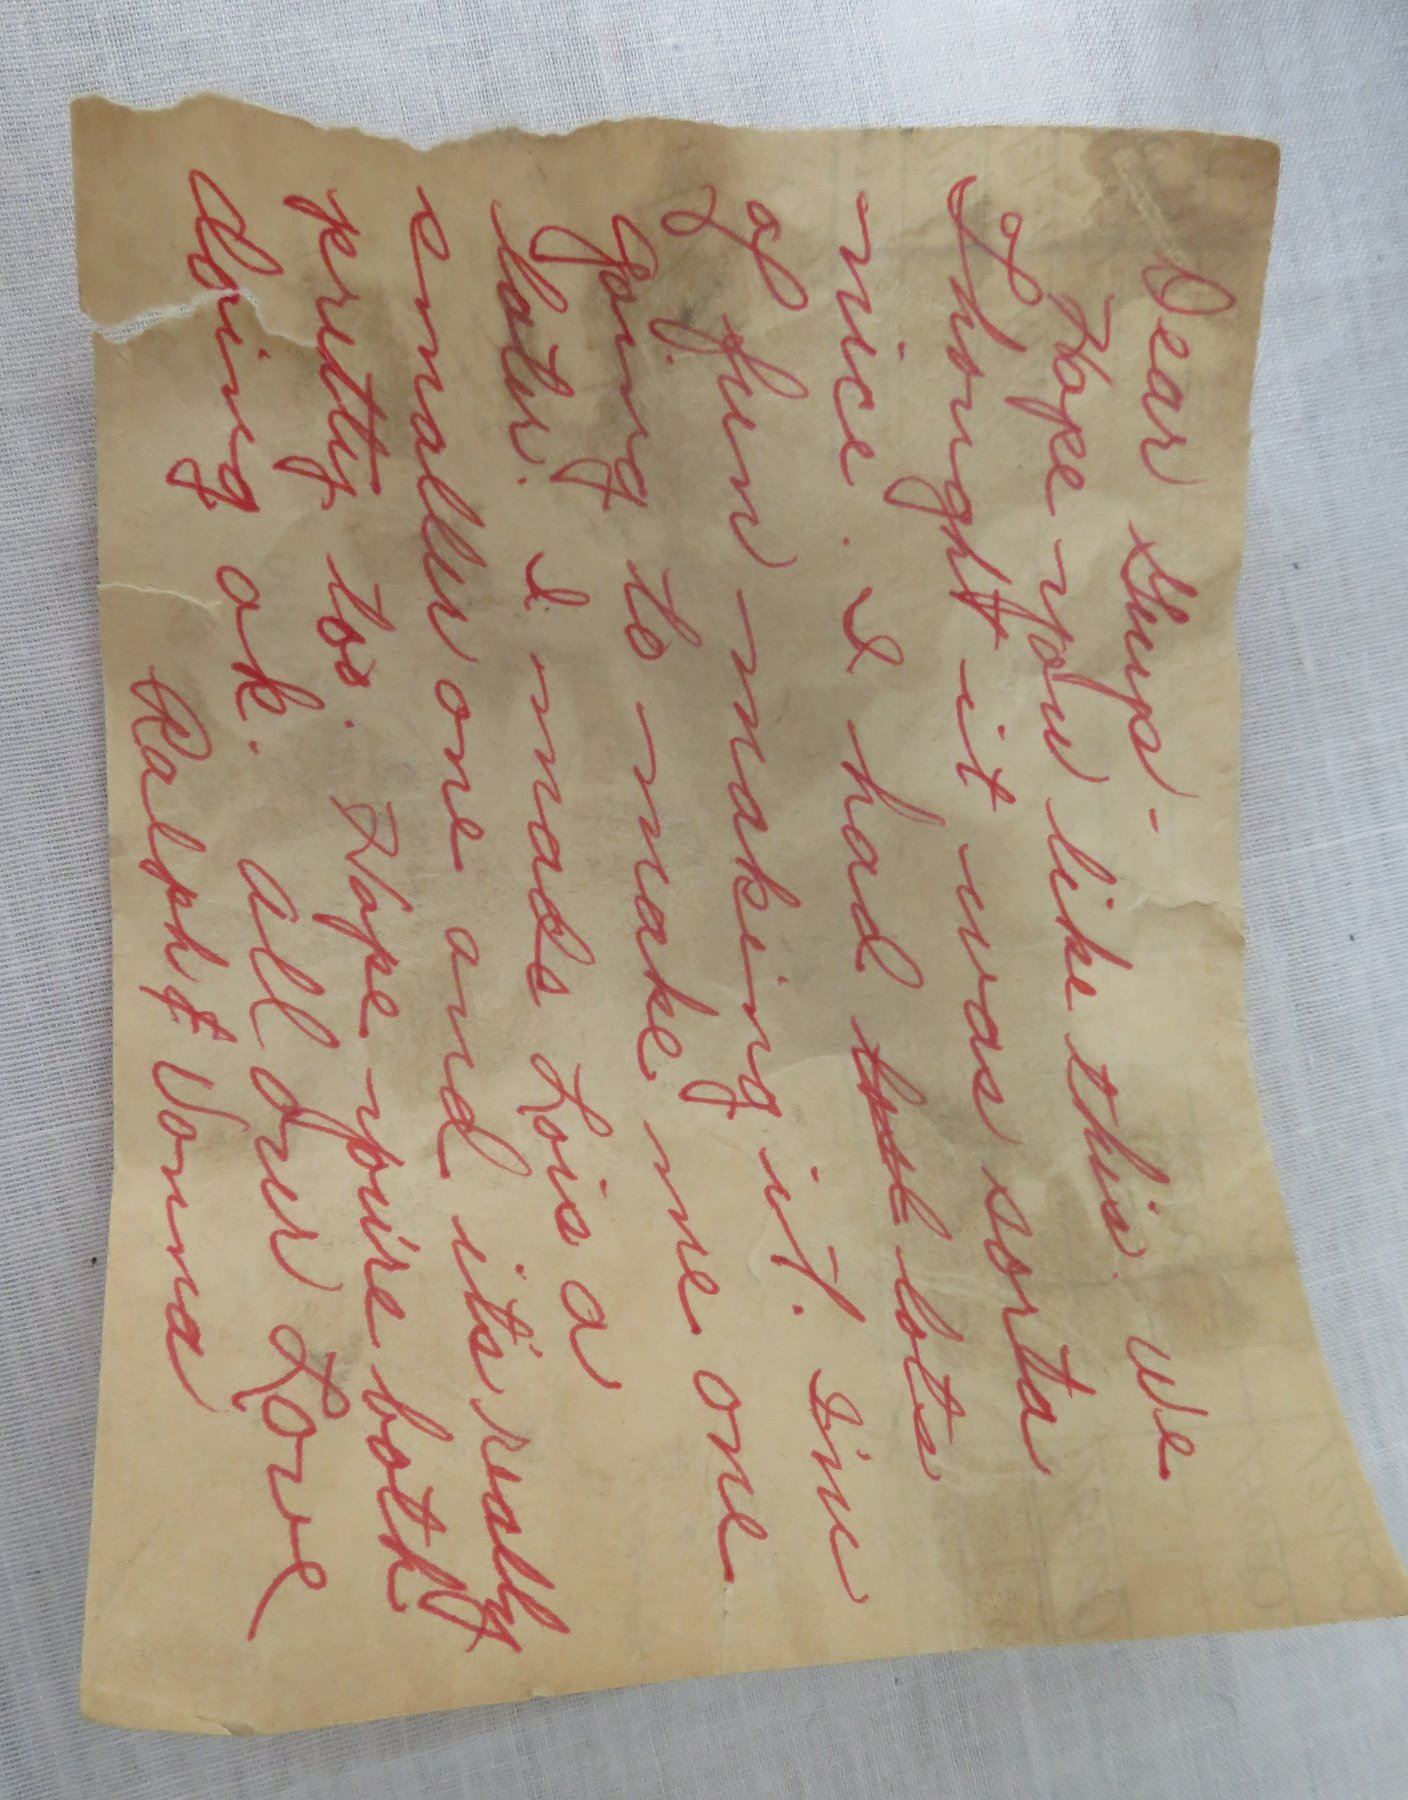 Dear Guys -
Hope you like this. We
thought it was sorta
nice. I had lots
of fun making it. Im
going to make me one
later. I made Lois a
smaller one and it's really
pretty too. Hope your both
doing ok. All Our Love
Ralph & Vonna